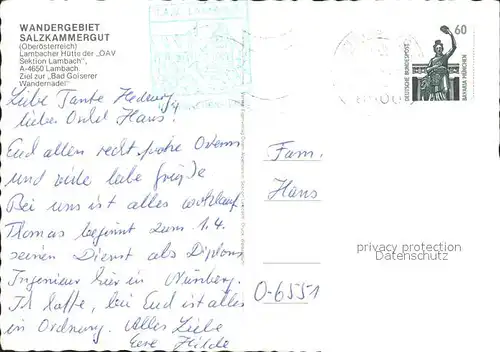 WANDERGEBIET
SALZKAMMERGUT
(Oberösterreich)
Lambacher Hütte der „OAV
Sektion Lambach",
A-4650 Lambach.
Ziel zur „Bad Goiserer
Wandernadel"
60
DEUTSCHE BUNDESPOST
BAVARIA MÜNCHEN
Liebe Tante Hedwig,
lieber Onkel Hans!
Euch allen recht frohe Ostern
und viele liebe Grüße
Bei uns ist alles wohlauf.
Thomas beginnt zum 1.4.
seinen Dienst als Diplom
Ingenieur hier in Nürnberg.
Ich hoffe, bei Euch ist alles
in Ordnung. Alles Liebe
Eure Hilde
Fam.
Hans
O-6551
privacy protection
Datenschutz